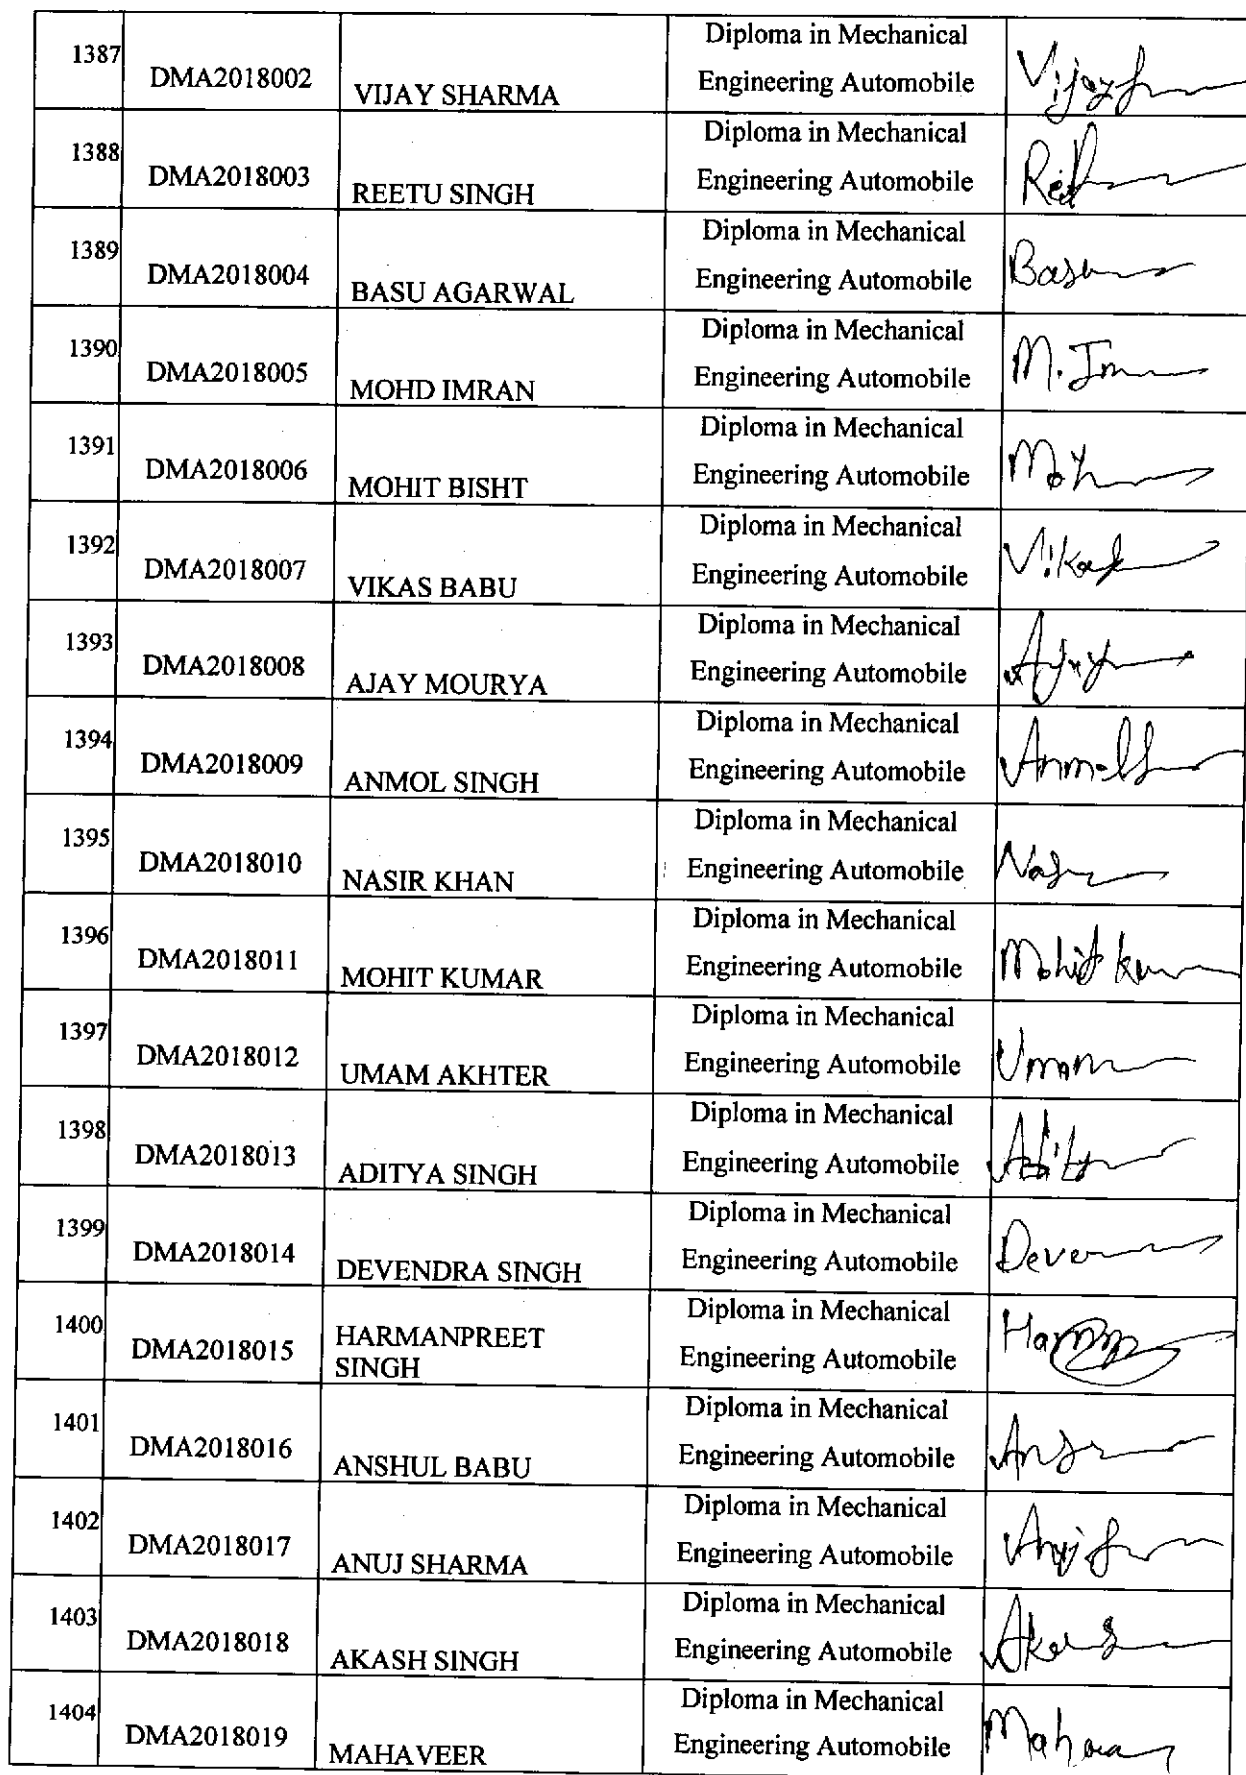 1387 DMA2018002 VIJAY SHARMA Diploma in Mechanical Engineering Automobile Vijay
1388 DMA2018003 REETU SINGH Diploma in Mechanical Engineering Automobile
1389 DMA2018004 BASU AGARWAL Diploma in Mechanical Engineering Automobile Basu
1390 DMA2018005 MOHD IMRAN Diploma in Mechanical Engineering Automobile M. Im
1391 DMA2018006 MOHIT BISHT Diploma in Mechanical Engineering Automobile
1392 DMA2018007 VIKAS BABU Diploma in Mechanical Engineering Automobile Vikas
1393 DMA2018008 AJAY MOURYA Diploma in Mechanical Engineering Automobile Ajay
1394 DMA2018009 ANMOL SINGH Diploma in Mechanical Engineering Automobile Anmol
1395 DMA2018010 NASIR KHAN Diploma in Mechanical Engineering Automobile
1396 DMA2018011 MOHIT KUMAR Diploma in Mechanical Engineering Automobile Mohit Kum
1397 DMA2018012 UMAM AKHTER Diploma in Mechanical Engineering Automobile Umam
1398 DMA2018013 ADITYA SINGH Diploma in Mechanical Engineering Automobile
1399 DMA2018014 DEVENDRA SINGH Diploma in Mechanical Engineering Automobile Deven
1400 DMA2018015 HARMANPREET SINGH Diploma in Mechanical Engineering Automobile
1401 DMA2018016 ANSHUL BABU Diploma in Mechanical Engineering Automobile
1402 DMA2018017 ANUJ SHARMA Diploma in Mechanical Engineering Automobile Anuj
1403 DMA2018018 AKASH SINGH Diploma in Mechanical Engineering Automobile
1404 DMA2018019 MAHAVEER Diploma in Mechanical Engineering Automobile